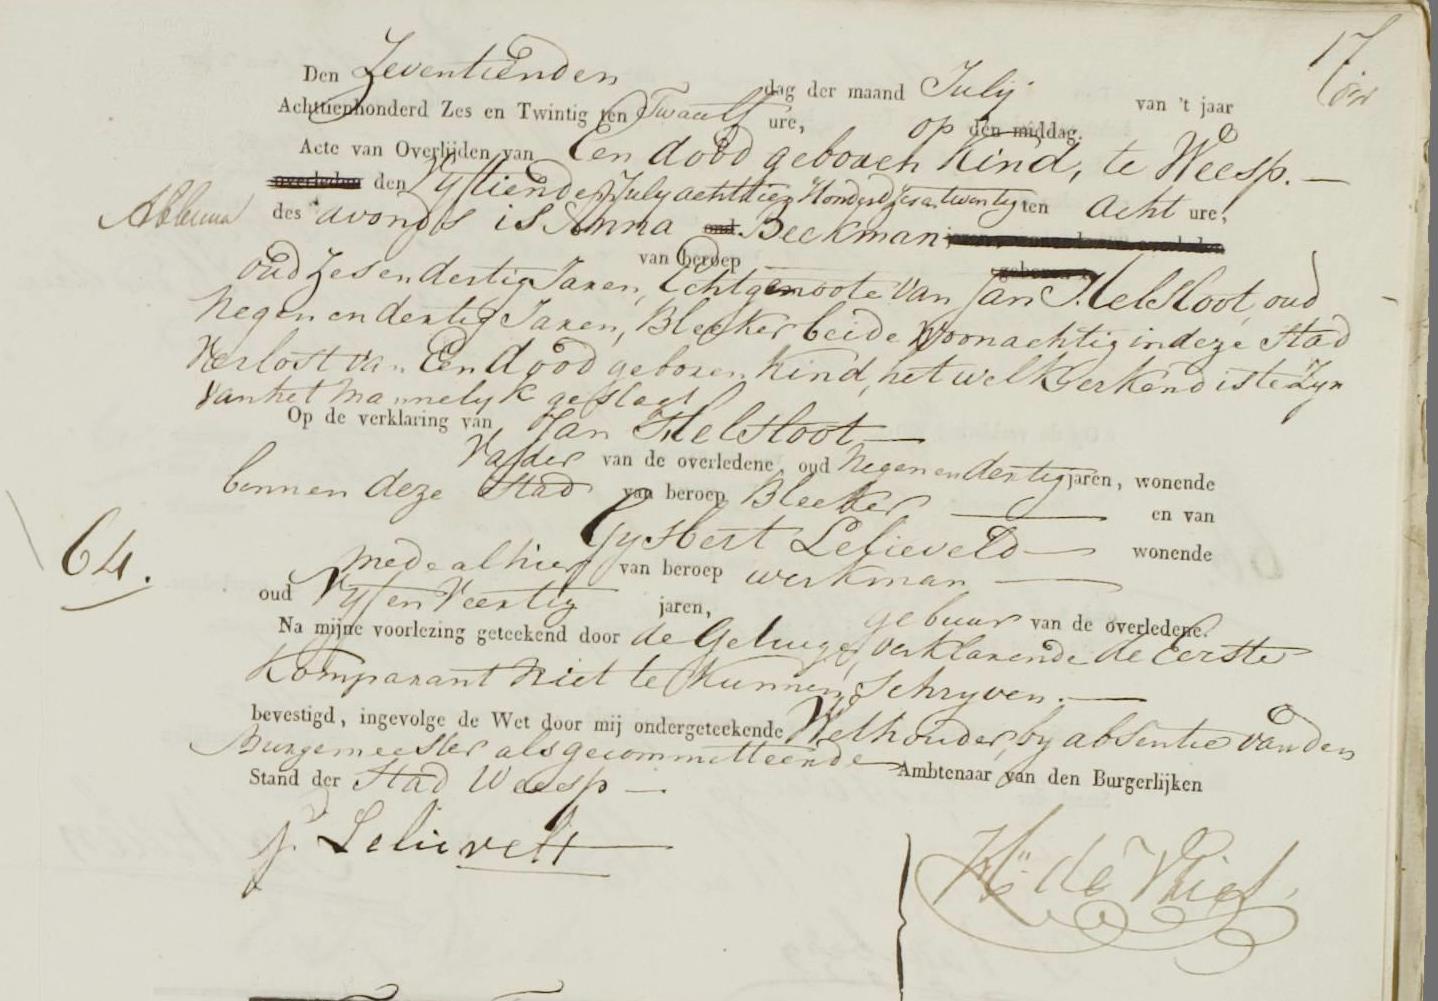 17
Den Zeventienden dag der maand Julij van 't jaar
Achttienhonderd Zes en Twintig ten Twaalf ure, op den middag.
Acte van Overlijden van Een dood geboren Kind, te Weesp. —
overleden den Vyftienden July achttien Honderd Zes en twintig ten acht ure,
des avonds is Anna oud Beekman
van beroep geboren
oud Zes en dertig Jaren, Echtgenoote van Jan Helsloot, oud
Negen en dertig Jaren, Bleeker beide Woonachtig in deze Stad
Verlost van Een dood geboren Kind, het welk erkend is te Zyn
van het mannelyk geslagt
Op de verklaring van Jan Helsloot —
Vader van de overledene, oud Negen en dertig jaren, wonende
binnen deze Stad van beroep Bleeker — en van
Gysbert Lelieveld — wonende
mede alhier van beroep werkman —
64.
oud Vyf en Veertig jaren, gebuur van de overledene.
Na mijne voorlezing geteekend door de Getuige, verklarende de Eerste
Komparant Niet te Kunnen Schryven. —
bevestigd, ingevolge de Wet door mij ondergeteekende Wethouder, by absentie van den
Burgemeester als gecommitteerde Ambtenaar van den Burgerlijken
Stand der Stad Weesp —
g Lelievelt
H: de Vries